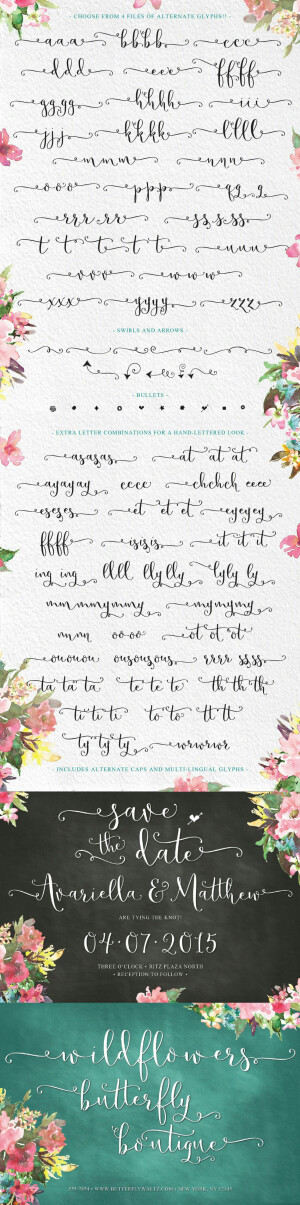 - CHOOSE FROM 4 FILES OF ALTERNATE GLYPHS!! -
aaaa bbbb ccc
ddd eee ffff
gggg hhhh iii
jjj kkkk llll
mmm nnn
ooo ppp qqq
rrrrr sssss
tttttt uuu
vvv www
xxx yyyy zzz
- SWIRLS AND ARROWS -
- BULLETS -
- EXTRA LETTER COMBINATIONS FOR A HAND-LETTERED LOOK -
asasas at at at
ayayay cccc chchch eeee
eseses et et et eyeyey
ffff isisis it it it
ing ing llll lly lly lyly ly
mmmymmy mymymy
nnnn oooo ot ot ot
ououou ousousous rrrr ssss
ta ta ta te te te th th th
ti ti ti to to tt tt
ty ty ty wrwrwr
- INCLUDES ALTERNATE CAPS AND MULTI-LINGUAL GLYPHS -
save
the date
Avariella & Matthew
ARE TYING THE KNOT!
04·07·2015
THREE O'CLOCK • RITZ PLAZA NORTH
• RECEPTION TO FOLLOW •
wildflowers
butterfly
boutique
WWW.BUTTERFLYWALTZ.COM